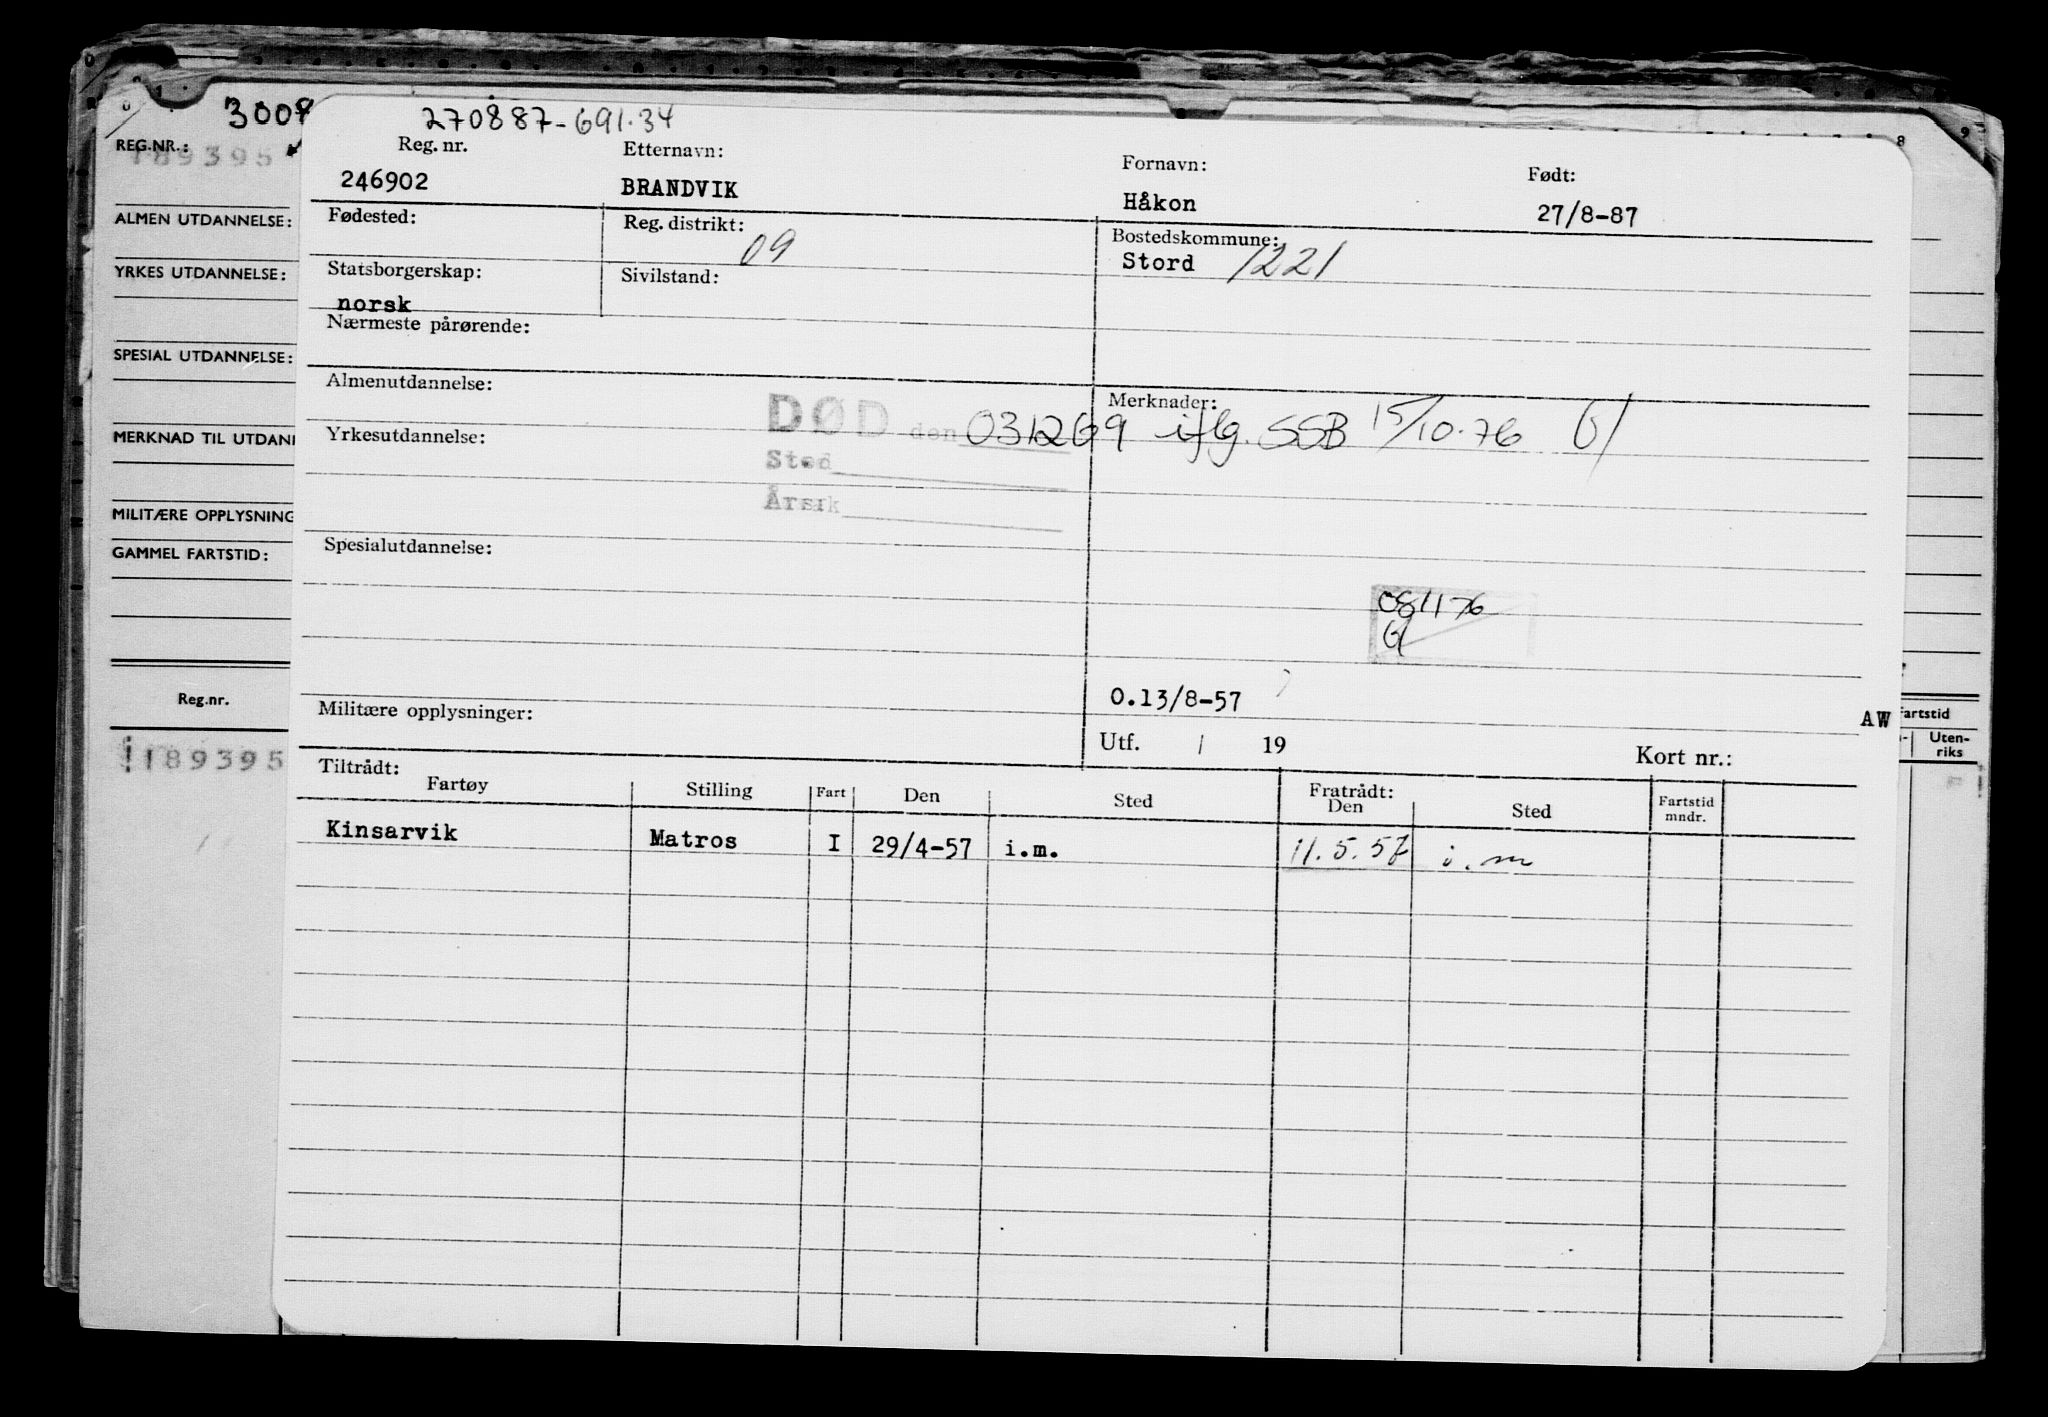 270887-691.34
Reg. nr. Etternavn: Fornavn: Født:
246902 BRANDVIK Håkon 27/8-87
Fødested: Reg. distrikt: 09 Bostedskommune:
Stord 1221
Statsborgerskap: Sivilstand:
norsk
Nærmeste pårørende:
Almenutdannelse: Merknader:
DØD den 031269 iflg. SSB 15/10.76
Yrkesutdannelse:
Sted
Årsak
Spesialutdannelse:
081176
O.13/8-57
Militære opplysninger:
Utf. / 19 Kort nr.:
AW
Tiltrådt: Fratrådt:
Fartøy Stilling Fart Den Sted Den Sted Fartstid mndr.
Kinsarvik Matros I 29/4-57 i.m. 11.5.57 i.m
REG.NR.:
189395
ALMEN UTDANNELSE:
YRKES UTDANNELSE:
SPESIAL UTDANNELSE:
MERKNAD TIL UTDAN
MILITÆRE OPPLYSNING
GAMMEL FARTSTID:
Reg.nr.
189395
fartstid
Uten-
riks